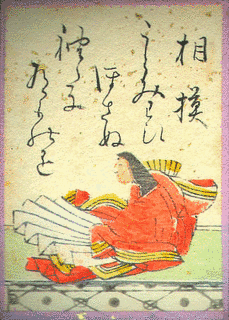 相摸
うらみわひ
ほさぬ
袖たに
あるものを